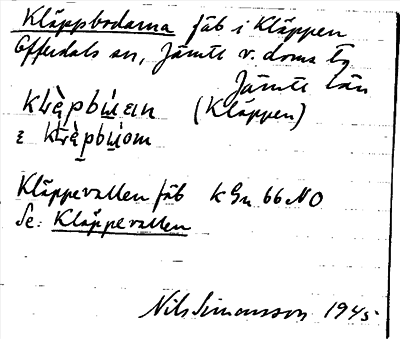 Kläppbodarna fäb i Kläppen
Offerdals sn, Jämtl. v. doms tg
Jämtl. län
(Kläppen)
Kläppevallen fäb k Gn 66 NO
Se: Kläppevallen
Nils Simonsson 1945